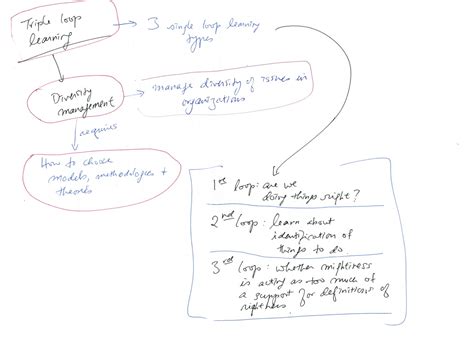 Triple loop
learning
3 single loop learning
types
Diversity
management
manage diversity of issues in
organizations
requires
How to choose
models, methodologies +
theories
1st loop: are we
doing things right?
2nd loop: learn about
identification of
things to do
3rd loop: whether mightiness
is acting as too much of
a support for definitions of